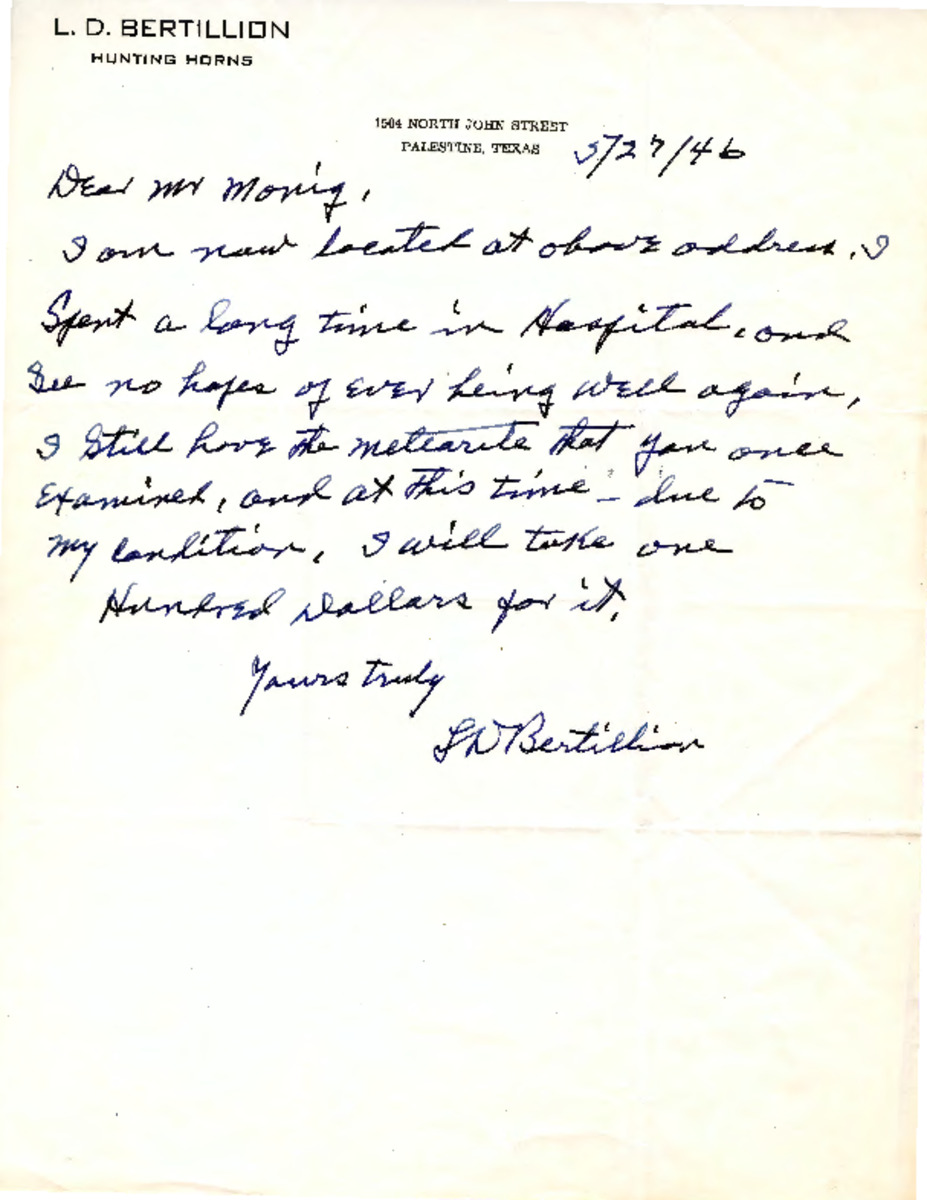 L. D. BERTILLION
HUNTING HORNS
1504 NORTH JOHN STREET
PALESTINE, TEXAS 5/27/46
Dear Mr Monig,
I am now located at above address. I
Spent a long time in Hospital, and
See no hopes of ever being well again,
I Still have the meteorite that you once
Examined, and at this time - due to
my condition, I will take one
Hundred Dollars for it.
Yours truly
L D Bertillion